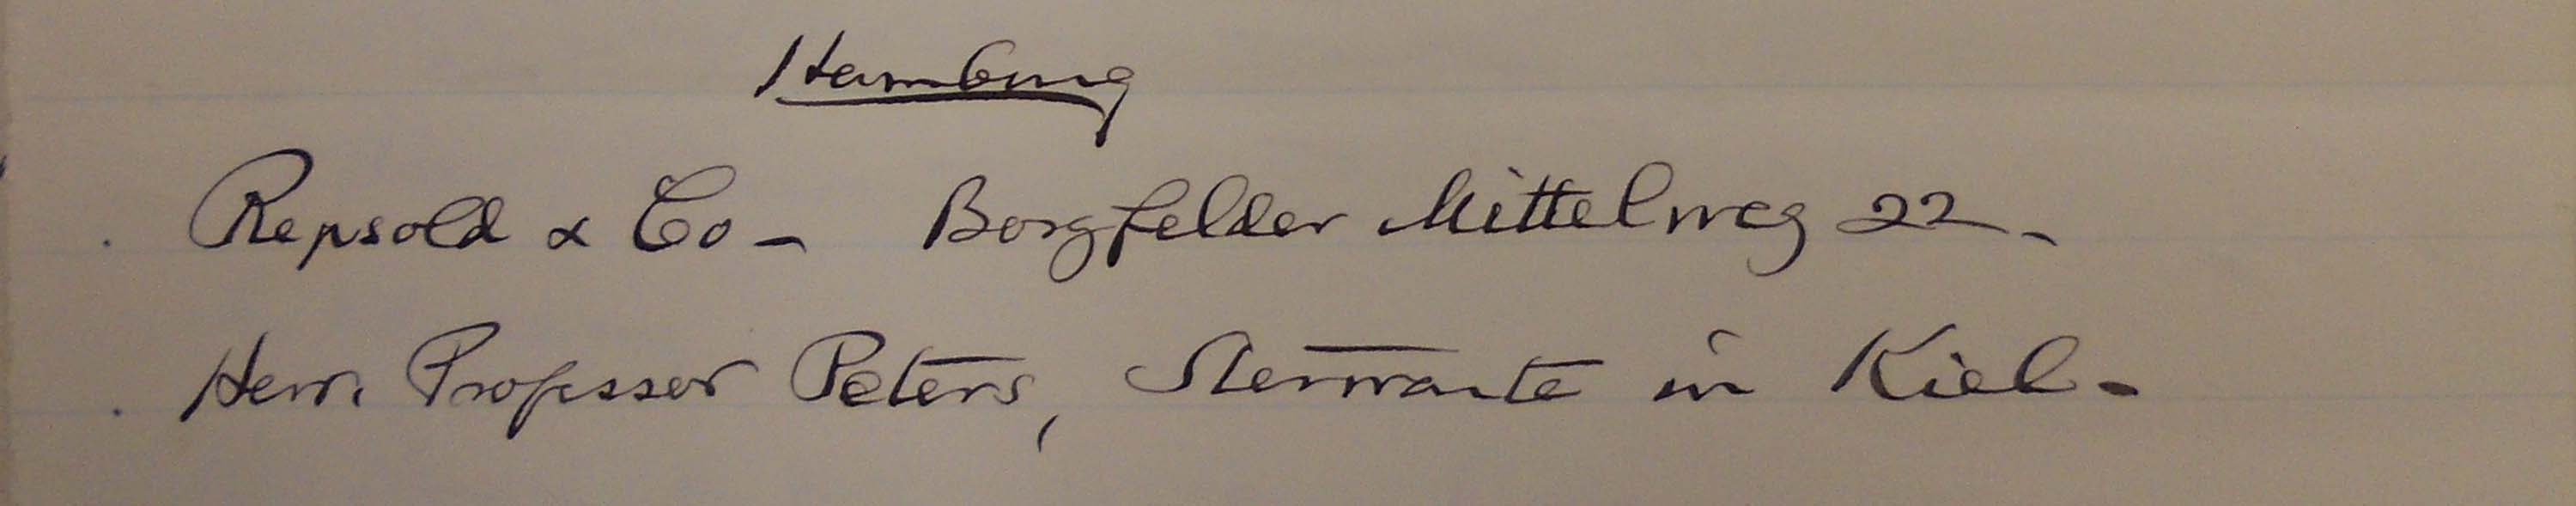 Hamburg
Repsold & Co - Borgfelder Mittelweg 22.
Herr. Professor Peters, Sternwarte in Kiel.